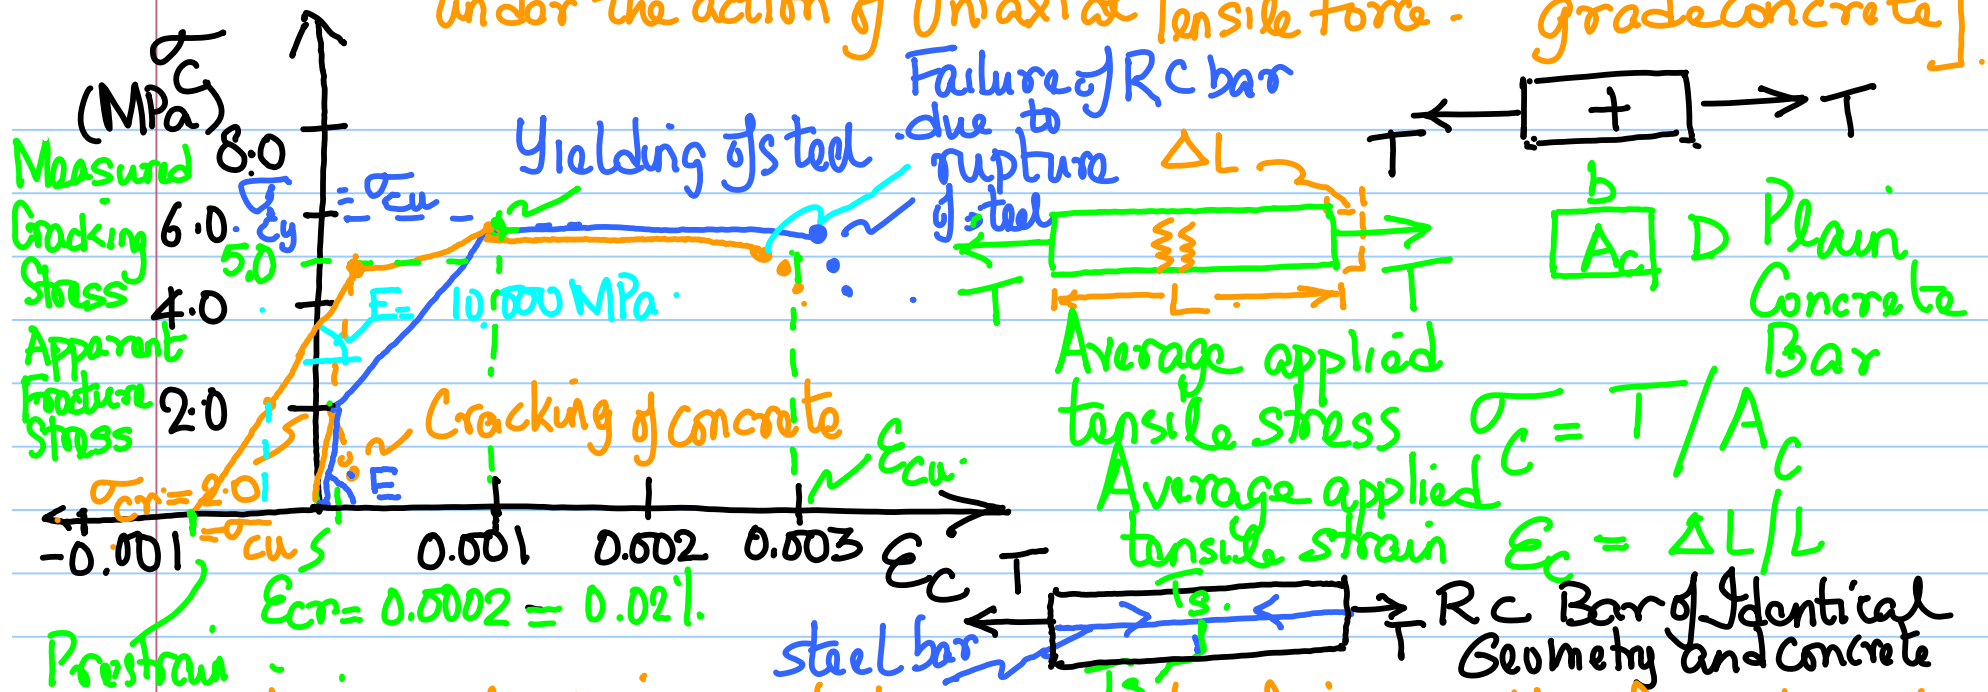 under the action of Uniaxial Tensile Force. gradeconcrete].
σc
(MPa)
8.0
6.0
5.0
4.0
2.0
Measured
Cracking
Stress
Apparent
Fracture
Stress
σεy = σcu
Yielding of steel
Failure of RC bar
due to
rupture
of steel
E = 10,000 MPa
Cracking of concrete
E
σcr = 2.0
= σcu
εcu
-0.001 0.001 0.002 0.003 εc
εcr = 0.0002 = 0.02%
Prestrain
T + T
ΔL
T T
L
b
Ac D
Plain
Concrete
Bar
Average applied
tensile stress σc = T/Ac
Average applied
tensile strain εc = ΔL/L
T Ts T
steel bar
Ts
RC Bar of Identical
Geometry and concrete